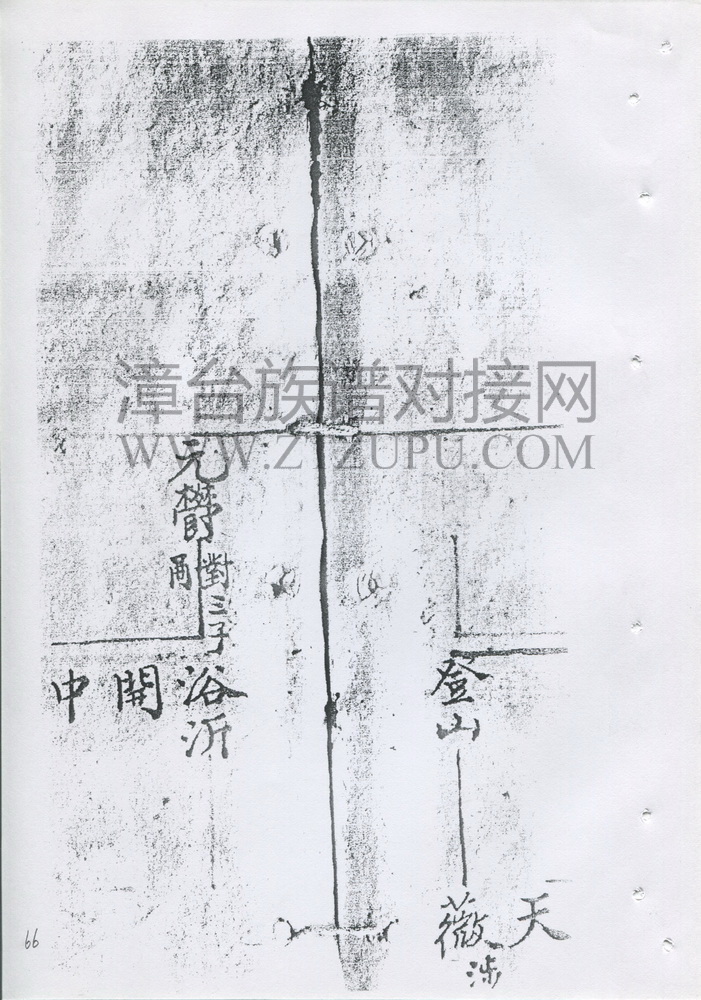 漳台族谱对接网
WWW.ZTZUPU.COM
登山
天
薇
涉
元欝
對三子
浴沂
開
中
66